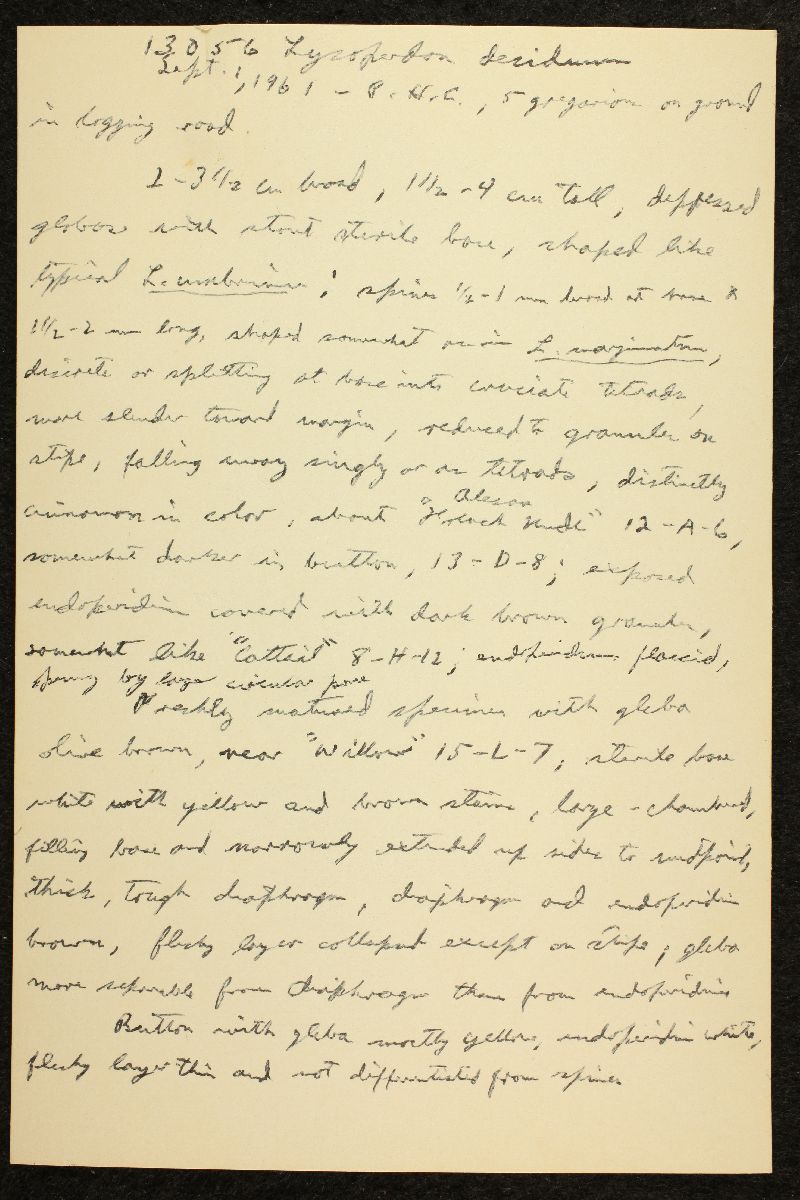 13056 Lycoperdon deciduum
Sept. 1, 1961 - P.H.C., 5 gregarious on ground
in logging road.
2-3 1/2 cm broad, 1 1/2 - 4 cm tall, depressed
globose with stout sterile base, shaped like
typical L. umbrinum; spines 1/2-1 mm broad at base &
1 1/2-2 mm long, shaped somewhat as in L. marginatum,
discrete or splitting at base into cruciate tetrads,
more slender toward margin, reduced to granules on
stipe, falling away singly or as tetrads, distinctly
cinnamon in color, about "French Nude" 12-A-6,
somewhat darker in button, 13-D-8; exposed
endoperidium covered with dark brown granules,
somewhat like "Cattail" 8-H-12; endoperidium flaccid,
opening by large circular pore
Freshly matured specimen with gleba
olive brown, near "Willow" 15-L-7, sterile base
white with yellow and brown stains, large-chambered,
filling base and narrowly extended up sides to midpoint,
thick, tough diaphragm, diaphragm and endoperidium
brown, fleshy layer collapsed except on stipe; gleba
more separable from diaphragm than from endoperidium
Button with gleba mostly yellow, endoperidium white,
fleshy layer thin and not differentiated from spines